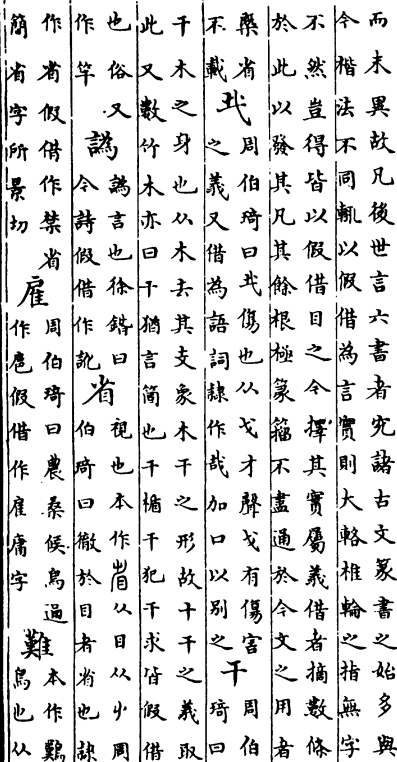 而未異故凡後世言六書者究諸古文篆書之始多與
今楷法不同輒以假借為言實則大輅椎輪之指無字
不然豈得皆以假借目之今擇其實屬義借者摘數條
於此以發其凡其餘根極篆籀不盡通於今文之用者
槩省
不載
𢦏
周伯琦曰𢦏傷也从戈才聲戈有傷害
之義又借為語詞隸作哉加口以別之
干
周伯
琦曰
干木之身也从木去其支象木干之形故十干之義取
此又數竹木亦曰干猶言箇也干楯干犯干求皆假借
也俗又
作竿
譌
譌言也徐鍇曰
今詩假借作訛
省
視也本作𥄎从目从屮周
伯琦曰徹於目者省也隸
作省假借作禁省
簡省字所景切
雇
周伯琦曰農桑候鳥過
作扈假借作雇庸字
難
本作鷄
鳥也从